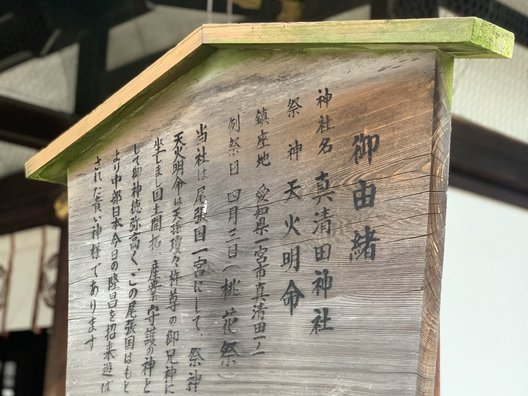 御由緒
神社名 真清田神社
祭神 天火明命
鎮座地 愛知県一宮市真清田一ノ二
例祭日 四月三日（桃花祭）
当社は尾張国一宮にして、祭神
天火明命は天孫瓊々杵尊の御兄神に
坐しまし国土開拓、産業守護の神と
して御神徳弥高く、この尾張国はもと
より中部日本今日の隆昌を招来遊ば
された貴い神様であります